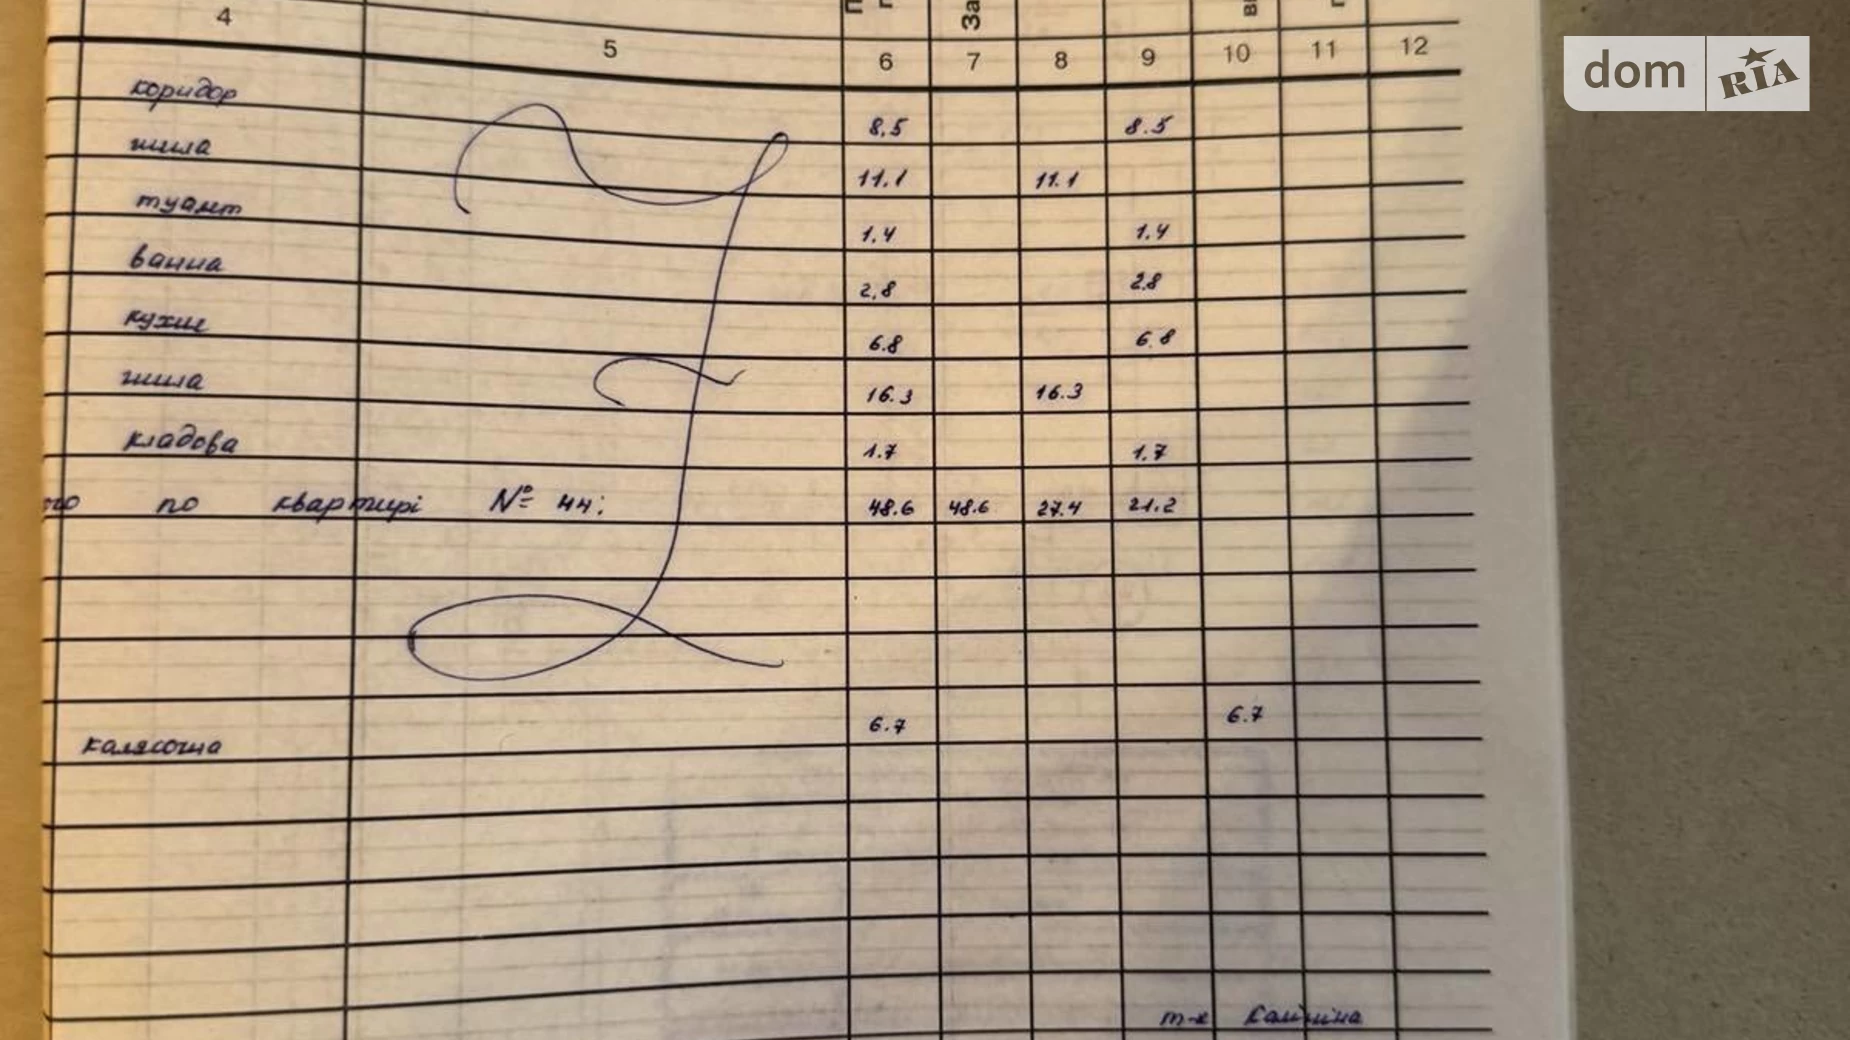 dom RIA
За
4 5 6 7 8 9 10 11 12
коридор 8,5 8.5
жила 11.1 11.1
туалет 1.4 1.4
ванна 2,8 2.8
кухня 6.8 6.8
жила 16.3 16.3
кладова 1.7 1.7
го по квартирі № 44: 48.6 48.6 27.4 21.2
колясочна 6.7 6.7
т-к